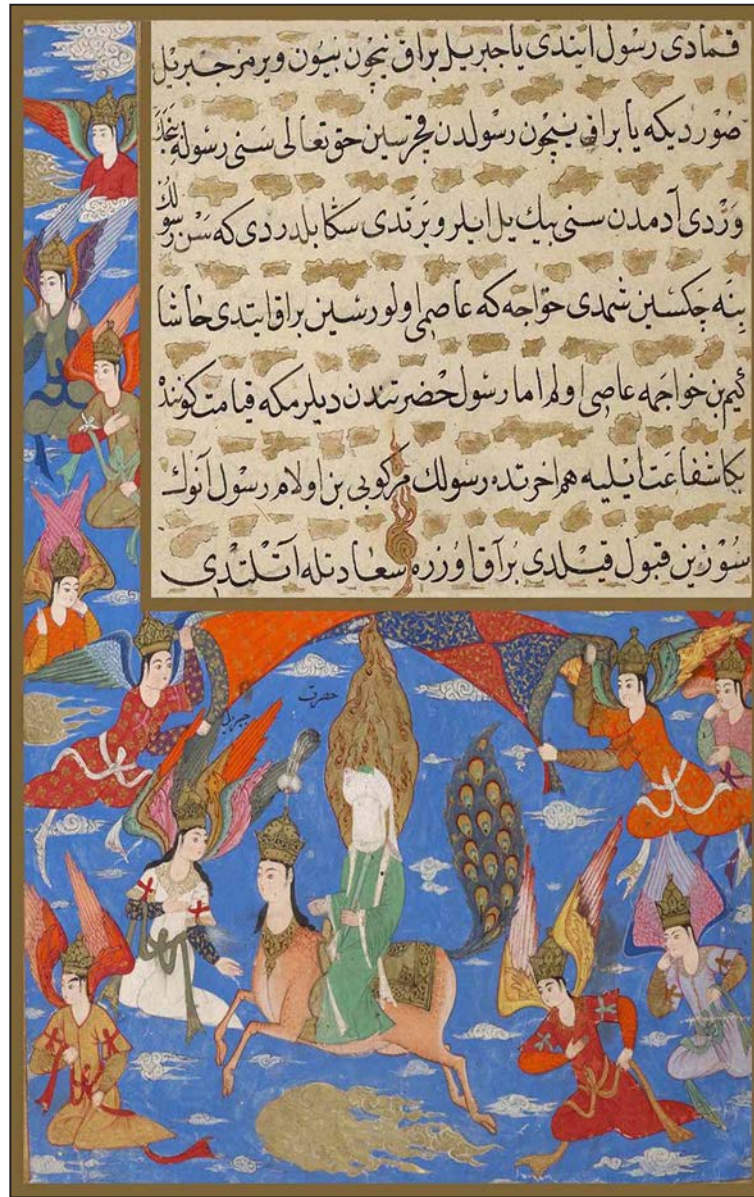 قمادی رسول ایتدی یا جبریل براق نیچون بنیون ویرمز جبریل
صورد دیکه یا براق نیچون رسولدن قچرسین حق تعالی سنی رسوله
وردی آدمدن سنی بیك یل ایلرو برتدی سکا بلدردی که سن رسولك
بنه جکسین شمدی خواجه که عاصمی اولورسین براق ایتدی حاشا
کیم بن خواجهه عاصی اولم اما رسول حضرتندن دیلرمکه قیامت کوننده
بکا شفاعت ایلیه هم اخرتده رسولك مرکوبی بن اولام رسول آنوك
سوزین قبول قیلدی براق اوزره سعادتله آتلندی
حضرت
جبریل